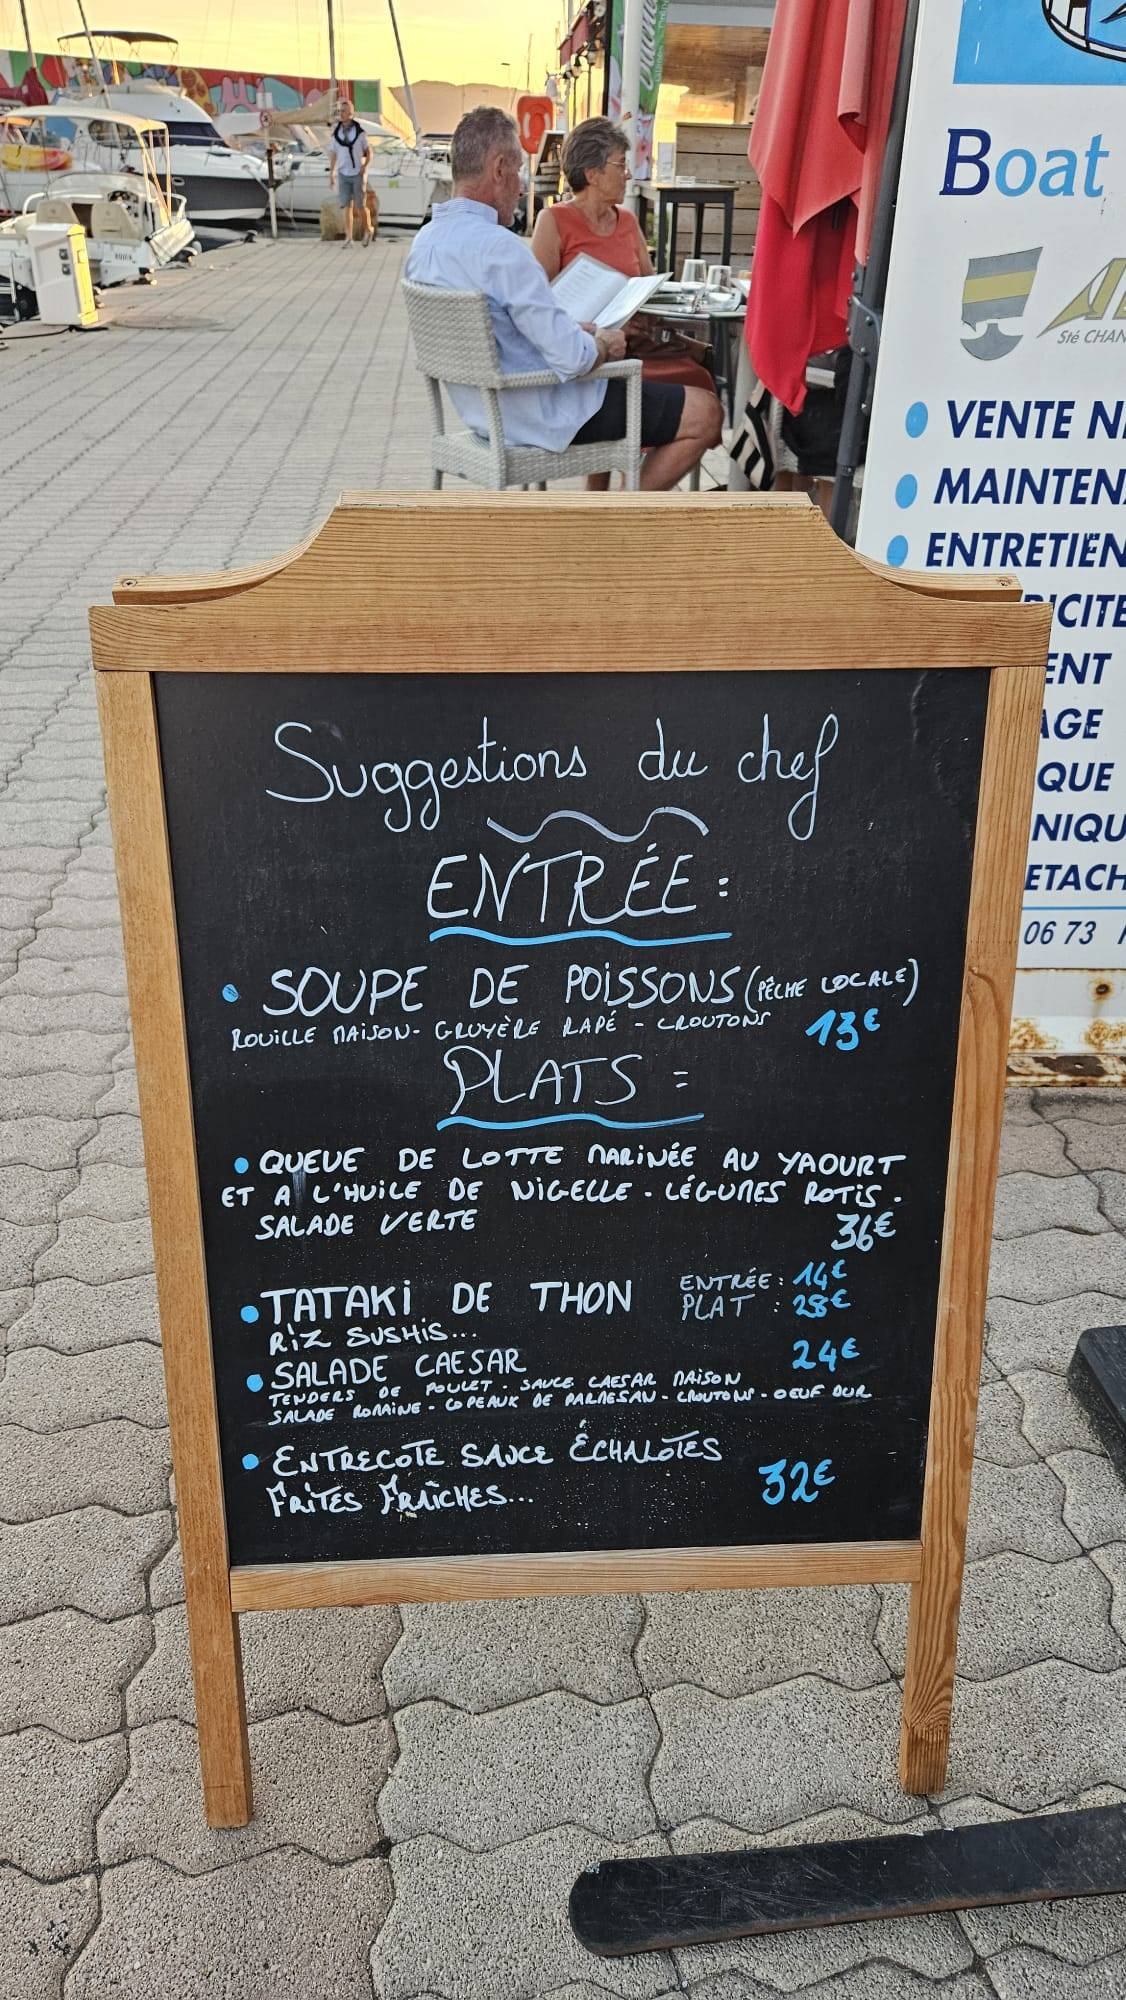 Suggestions du chef
ENTRÉE :
• SOUPE DE POISSONS (PÊCHE LOCALE)
ROUILLE MAISON - GRUYÈRE RAPÉ - CROUTONS 13€
PLATS :
• QUEUE DE LOTTE MARINÉE AU YAOURT
ET A L'HUILE DE NIGELLE - LÉGUMES ROTIS -
SALADE VERTE 36€
• TATAKI DE THON ENTRÉE : 14€
PLAT : 28€
RIZ SUSHIS...
• SALADE CAESAR 24€
TENDERS DE POULET - SAUCE CAESAR MAISON
SALADE ROMAINE - COPEAUX DE PARMESAN - CROUTONS - OEUF DUR
• ENTRECOTE SAUCE ÉCHALOTES
FRITES FRAÎCHES... 32€
Boat
Sté CHAN
• VENTE N
• MAINTEN
• ENTRETIEN
RICITE
ENT
AGE
QUE
NIQU
ETACH
06 73